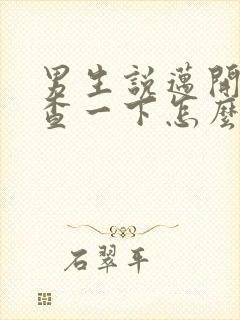 男生說適閒
查一下怎麼
石翠平